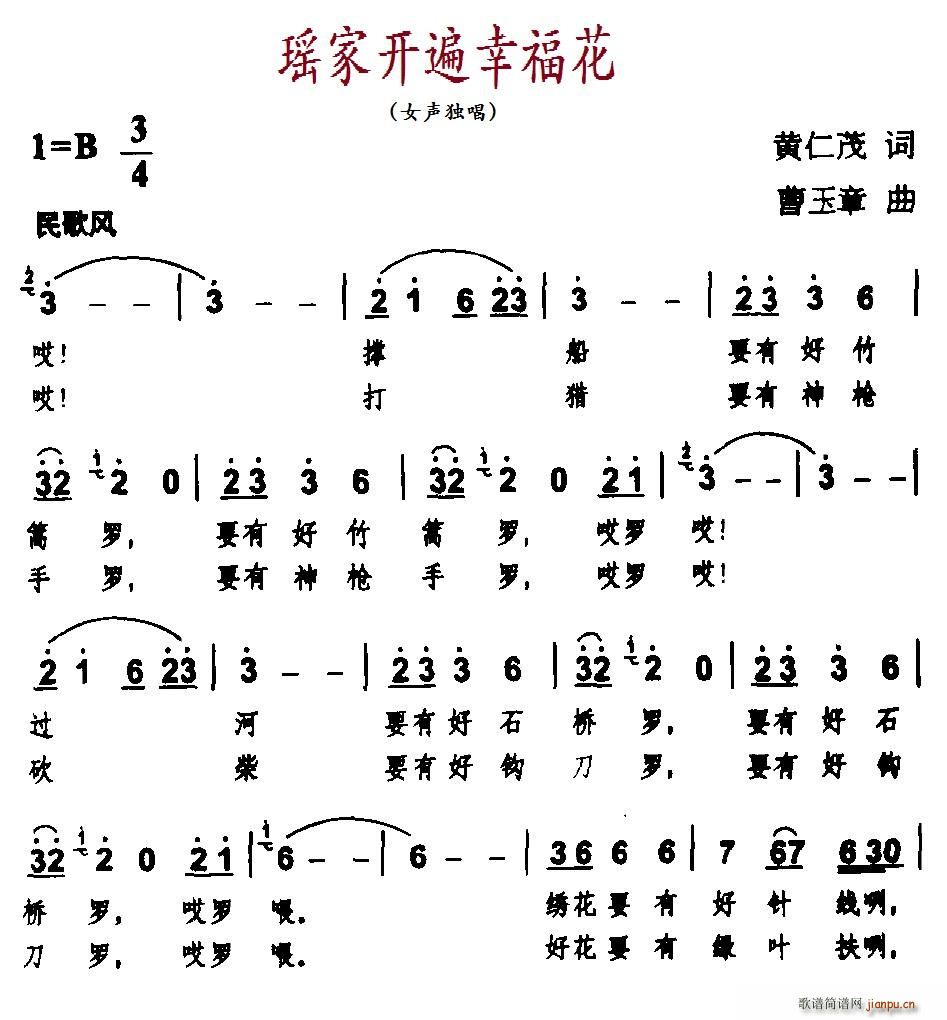 瑶家开遍幸福花
(女声独唱)
1=B 3/4
黄仁茂 词
民歌风
曹玉章 曲
2 3 - - | 3 - - | 2 1 6 23 | 3 - - | 23 3 6 |
哎! 撑 船 要有好竹
哎! 打 猎 要有神枪
32 1 2 0 | 23 3 6 | 32 1 2 0 21 | 2 3 - - | 3 - - |
篙 罗, 要有好竹 篙 罗, 哎罗 哎!
手 罗, 要有神枪 手 罗, 哎罗 哎!
2 1 6 23 | 3 - - | 23 3 6 | 32 1 2 0 | 23 3 6 |
过 河 要有好石 桥 罗, 要有好石
砍 柴 要有好钩 刀 罗, 要有好钩
32 1 2 0 21 | 1 6 - - | 6 - - | 36 6 6 | 7 67 630 |
桥 罗, 哎罗 喂。 绣花要有 好 针 线咧,
刀 罗, 哎罗 喂。 好花要有 绿 叶 扶咧,
歌谱简谱网 jianpu.cn